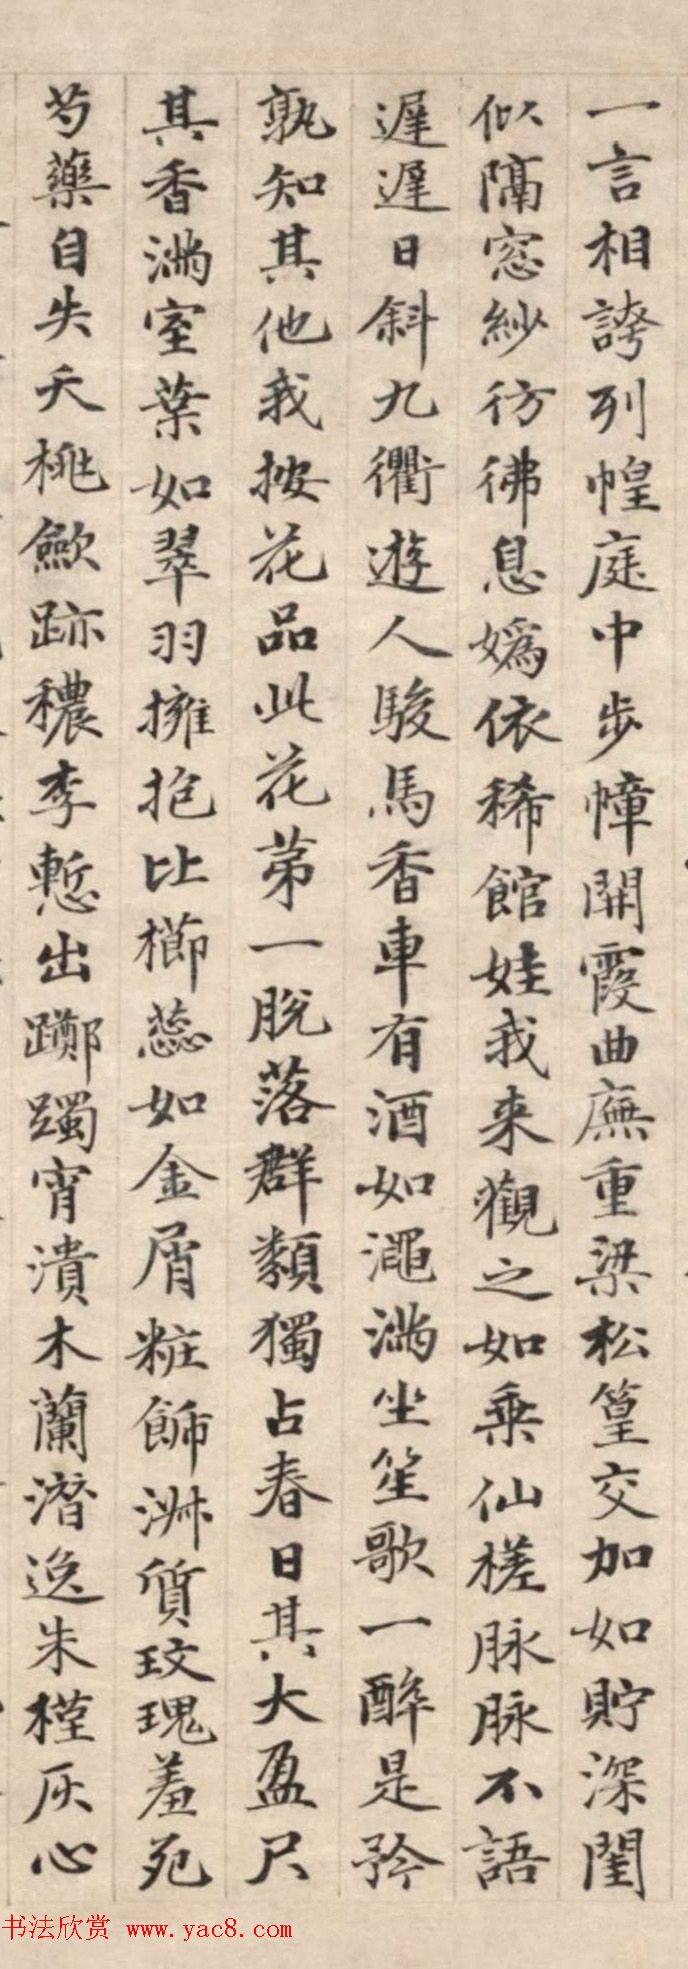 一言相誇列幄庭中步幛開霞曲廡重梁松篁交加如貯深閨
似隔窓紗彷彿息嬀依稀館娃我来觀之如乗仙槎脉脉不語
遲遲日斜九衢遊人駿馬香車有酒如澠満坐笙歌一醉是矜
孰知其他我按花品此花苐一脫落群類獨占春日其大盈尺
其香満室葉如翠羽擁抱比櫛蕊如金屑粧飾淋質玫瑰羞死
芍藥自失夭桃歛跡穠李慙出躑躅宵潰木蘭潛逸朱槿灰心
书法欣赏 www.yac8.com